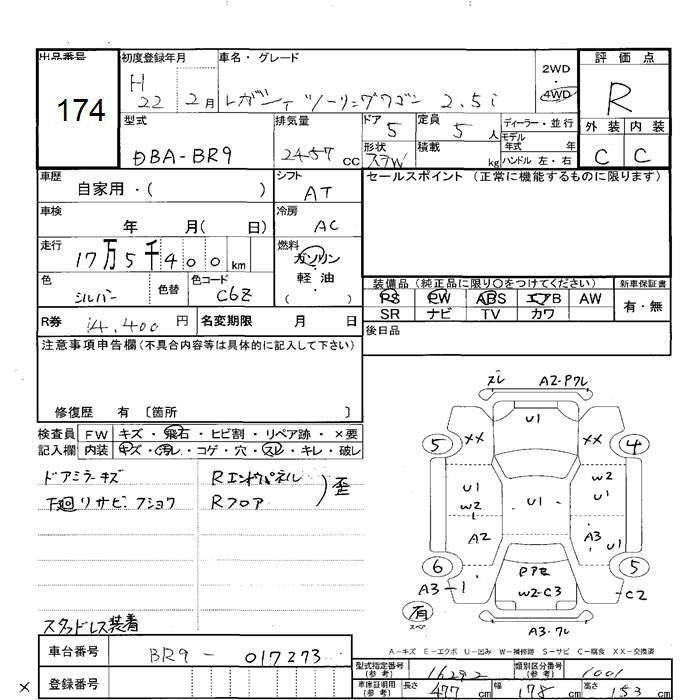 出品番号
174
初度登録年月
H
22 2月
車名・グレード
レガシィ ツーリングワゴン 2.5i
2WD・
4WD
評価点
R
外装 内装
C C
型式
DBA-BR9
排気量
2457 cc
ドア
5
定員
5 人
形状
STW
積載
kg
ディーラー・並行
モデル
年式 年
ハンドル 左・右
車歴
自家用・( )
シフト
AT
セールスポイント (正常に機能するものに限ります)
車検
年 月( 日)
冷房
AC
走行
17万5千400 km
燃料
ガソリン
・
軽油
( )
色
シルバー
色替
色コード
C6Z
装備品 (純正品に限り○をつけてください)
PS PW ABS エアB AW
SR ナビ TV カワ
新車保証書
有・無
R券
14,400 円
名変期限 月 日
後日品
注意事項申告欄(不具合内容等は具体的に記入して下さい)
修復歴 有 〔箇所 〕
検査員
記入欄
FW キズ・飛石・ヒビ割・リペア跡・×要
内装 キズ・汚レ・コゲ・穴・スレ・キレ・破レ
ドアミラーキズ
下廻リサビ・フショク
Rエンドパネル
Rフロア
歪
スタッドレス装着
ズレ A2-Pワレ
U1
XX XX
5 4
U1
W2
U1
W2
U1
A2
A3
U1
6 5
Pアセ
W2-C3
A3-1
C2
有
スペア
A3・ワレ
A-キズ E-エクボ U-凹み W-補修跡 S-サビ C-腐食 XX-交換済
車台番号
BR9 - 017273
登録番号
×
型式指定番号
(参考)
16292
類別区分番号
(参考)
1001
車庫証明用
(参考)
長さ 477 cm 幅 178 cm 高さ 153 cm